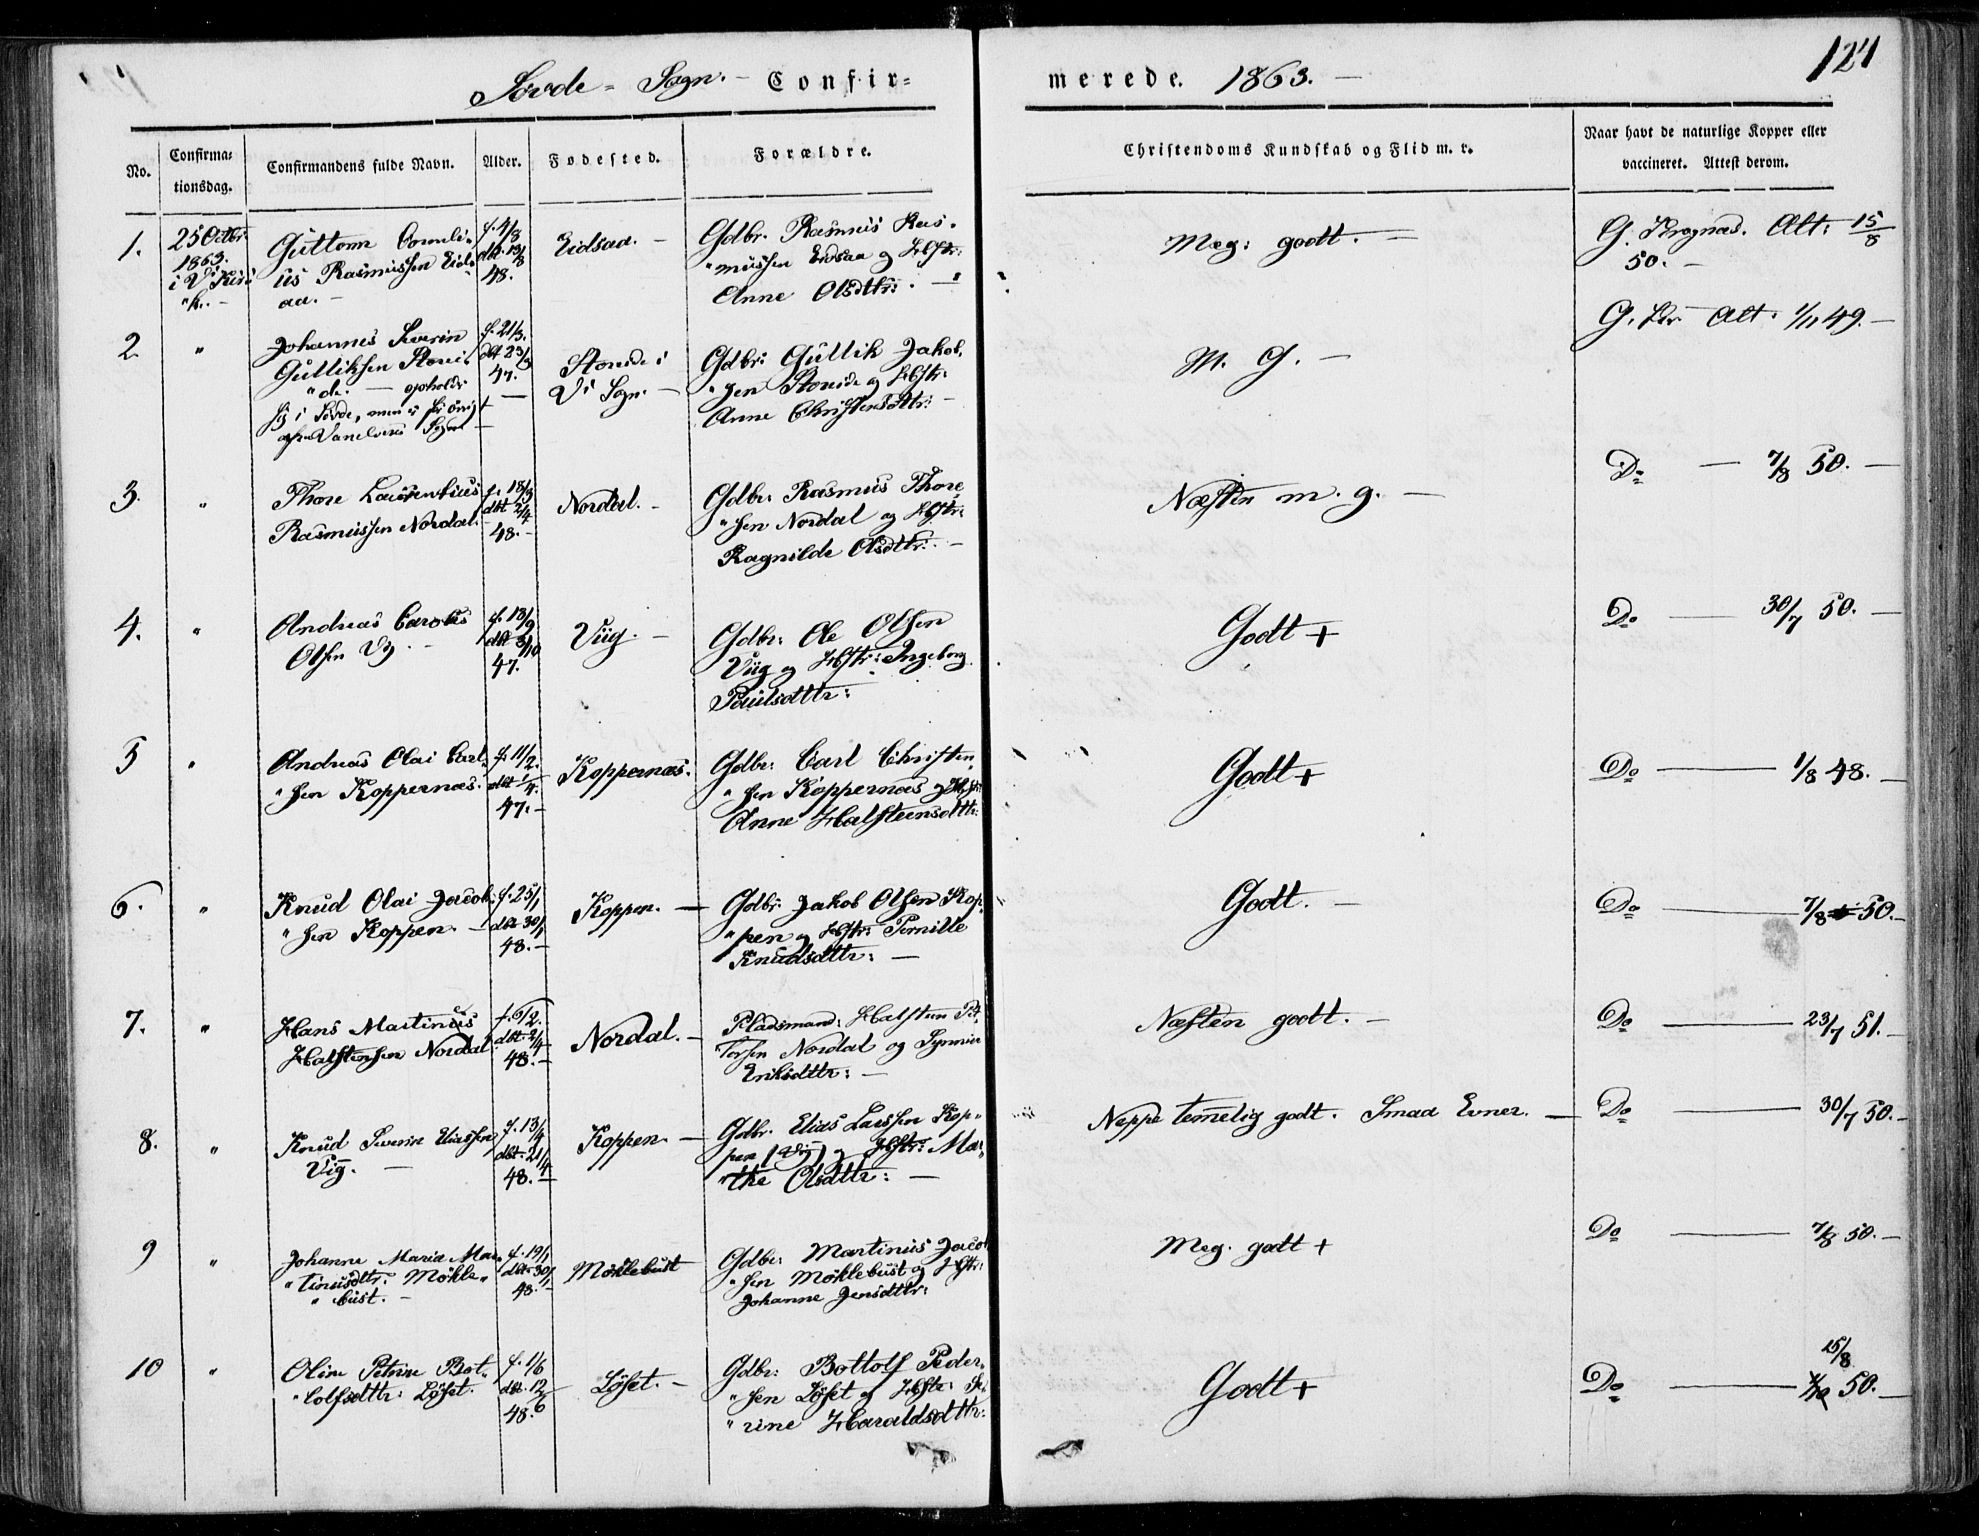 124
Søvde- Sogn. - Confir=
merede. 1863. -
No.
Confirma=
tionsdag.
Confirmandens fulde Navn.
Alder.
Fødested.
Forældre.
Christendoms Kundskab og Flid m. v.
Naar havt de naturlige Kopper eller
vaccineret. Attest derom.
1.
25 Octbr.
1863.
i V. Kir=
"k. -
Guttorm Corneli=
us Rasmussen Eids=
aa. -
f. 4/8
dbt. 13/8
48.
Eidsaa. -
Gdbr. Rasmus Ras=
"mussen Eidsaa og Hstr:
Anne Olsdttr. -
Meg: godt. -
G. Krognæs. Att: 15/8
50. -
2.
"
Johannes Severin
Gulliksen Stoure=
"de. - opholdt
sig i Søvde, men er for øvrigt
af Vanelvens Sogn -
f. 21/3.
dbt 23/3
47.
Gdbr: Gullik Jakob=
"sen og Hstr:
Anne Christensdttr: -
V. Sogn. -
M. G. -
G. Att: 1/11 49. -
3.
"
Thore Laurentius
Rasmussen Nordal. -
f. 18/3
dbt 2/4
48. -
Nordal. -
Gdbr: Rasmus Thore=
"sen Nordal og Hstr:
Ragnilde Olsdttr: -
Næsten m. g. -
Do - 7/8 50. -
4.
"
Andreas Carolus
Olsen Vig. -
f. 13/9
dbt 3/10
47.
Viig. -
Gdbr: Ole Olsen
Viig og Hstr: Ingeborg
Paulsdttr:
Godt +
Do - 30/7 50. -
5
"
Andreas Olai Carl=
"sen Koppernæs.
f. 11/2.
dbt 1/4.
47. -
Koppernæs.
Gdbr: Carl Christen=
"sen Koppernæs og Hstr:
Anne Halsteensdttr:
Godt +
Do - 1/8 48. -
6.
"
Knud Olai Jacob=
"sen Koppen. -
f. 25/1
dbt 30/1
48. -
Koppen. -
Gdbr: Jakob Olsen Kop=
"pen og Hstr: Pernille
Knudsdttr: -
Godt. -
Do - 7/8 50. -
7.
"
Hans Martinus
Halstensen Nordal
f. 6/2.
dbt 2/4
48. -
Nordal. -
Pladsmand: Halsten Pet=
"tersen Nordal og Synneva
Eriksdttr: -
Næsten godt. -
Do - 23/7 51. -
8.
"
Knud Severin Eliassen
Vig. -
f. 13/4
dbt. 21/4
48. -
Koppen. -
Gdbr. Elias Larssen Kop=
pen (Vig) og Hstr: Ma=
"the Olsdttr: -
Neppe temelig godt. Smaa Evner. -
Do - 30/7 50. -
9
"
Johanne Maria Mar=
"tinusdttr: Møkle=
"bust. -
f. 19/1
dbt 30/1
48. -
Møklebust
Gdbr: Martinus Jacob
"sen Møklebust og Hstr:
Johanne Jensdttr:
Meg. godt +
Do - 7/8 50. -
10
"
Oline Petrine Bot=
"tolfsdttr: Løset.
f. 1/6
dbt. 12/6
48.
Løset. -
Gdbr: Bottolf Peder=
"sen Løset og Hstr: Se=
"rine Haraldsdttr:
Godt +
15/8
Do - 50. -